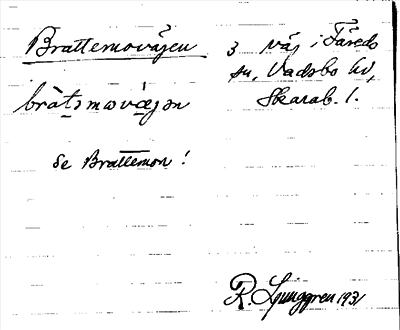 Brattemovägen 3 väg i Färeds
sn, Vadsbo hd,
bràt̲smovæ̲gən Skarab. l.
se Brattemon!
R. Ljunggren 1931